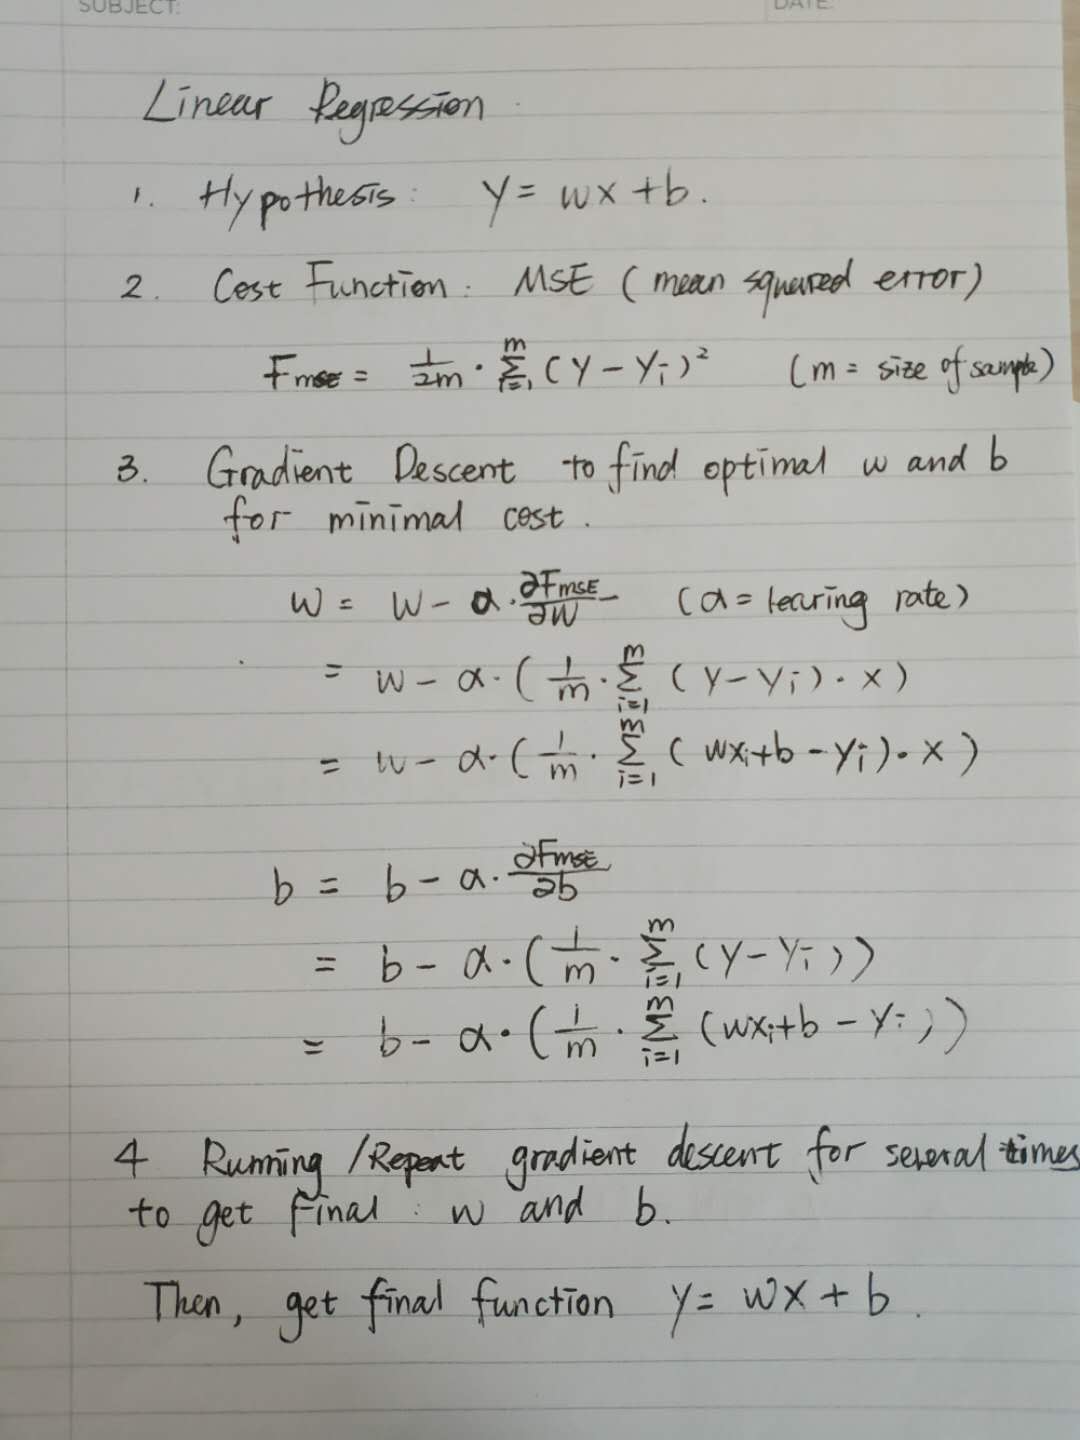 SUBJECT:
DATE:
Linear Regression
1. Hypothesis: y = wx + b.
2. Cost Function: MSE (mean squared error)
Fmse = 1/2m · Σ_{i=1}^{m} (y - yi)² (m = size of sample)
3. Gradient Descent to find optimal w and b
for minimal cost.
w = w - α · ∂FMSE/∂w (α = learing rate)
= w - α · (1/m · Σ_{i=1}^{m} (y - yi) · x)
= w - α · (1/m · Σ_{i=1}^{m} (wxi + b - yi) · x)
b = b - α · ∂FMSE/∂b
= b - α · (1/m · Σ_{i=1}^{m} (y - yi))
= b - α · (1/m · Σ_{i=1}^{m} (wxi + b - yi))
4 Running /Repeat gradient descent for several times
to get final : w and b.
Then, get final function y = wx + b.